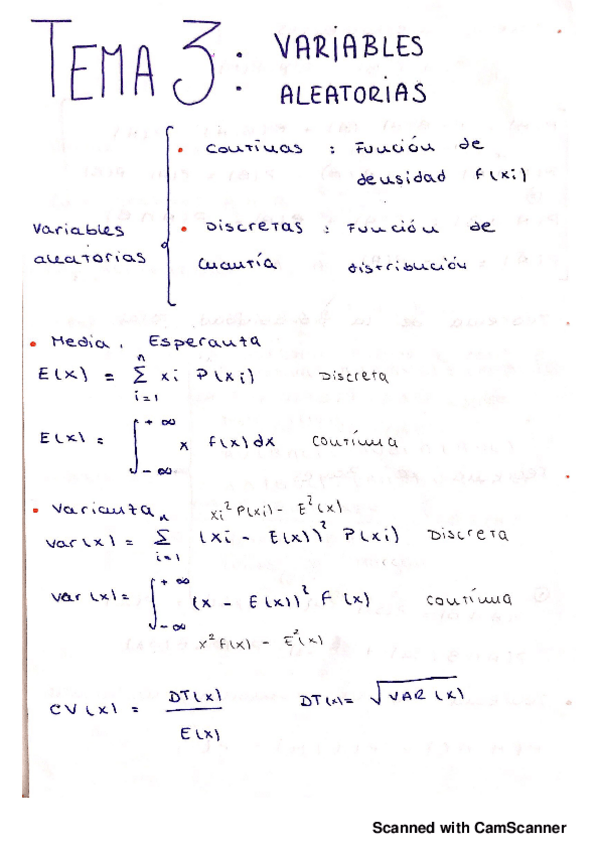 TEMA 3: VARIABLES
ALEATORIAS
• Contínuas : Función de
densidad f(xi)
Variables
aleatorias
• Discretas : Función de
cuantía distribución
• Media, Esperanza
E(x) = Σ i=1 n xi P(xi) Discreta
E(x) = ∫ -∞ +∞ x f(x)dx contínua
• Varianza xi² P(xi) - E²(x)
var(x) = Σ i=1 n (xi - E(x))² P(xi) Discreta
var(x) = ∫ -∞ +∞ (x - E(x))² F(x) contínua
x² F(x) - E²(x)
CV(x) = DT(x) / E(x) DT(x) = √VAR(x)
Scanned with CamScanner